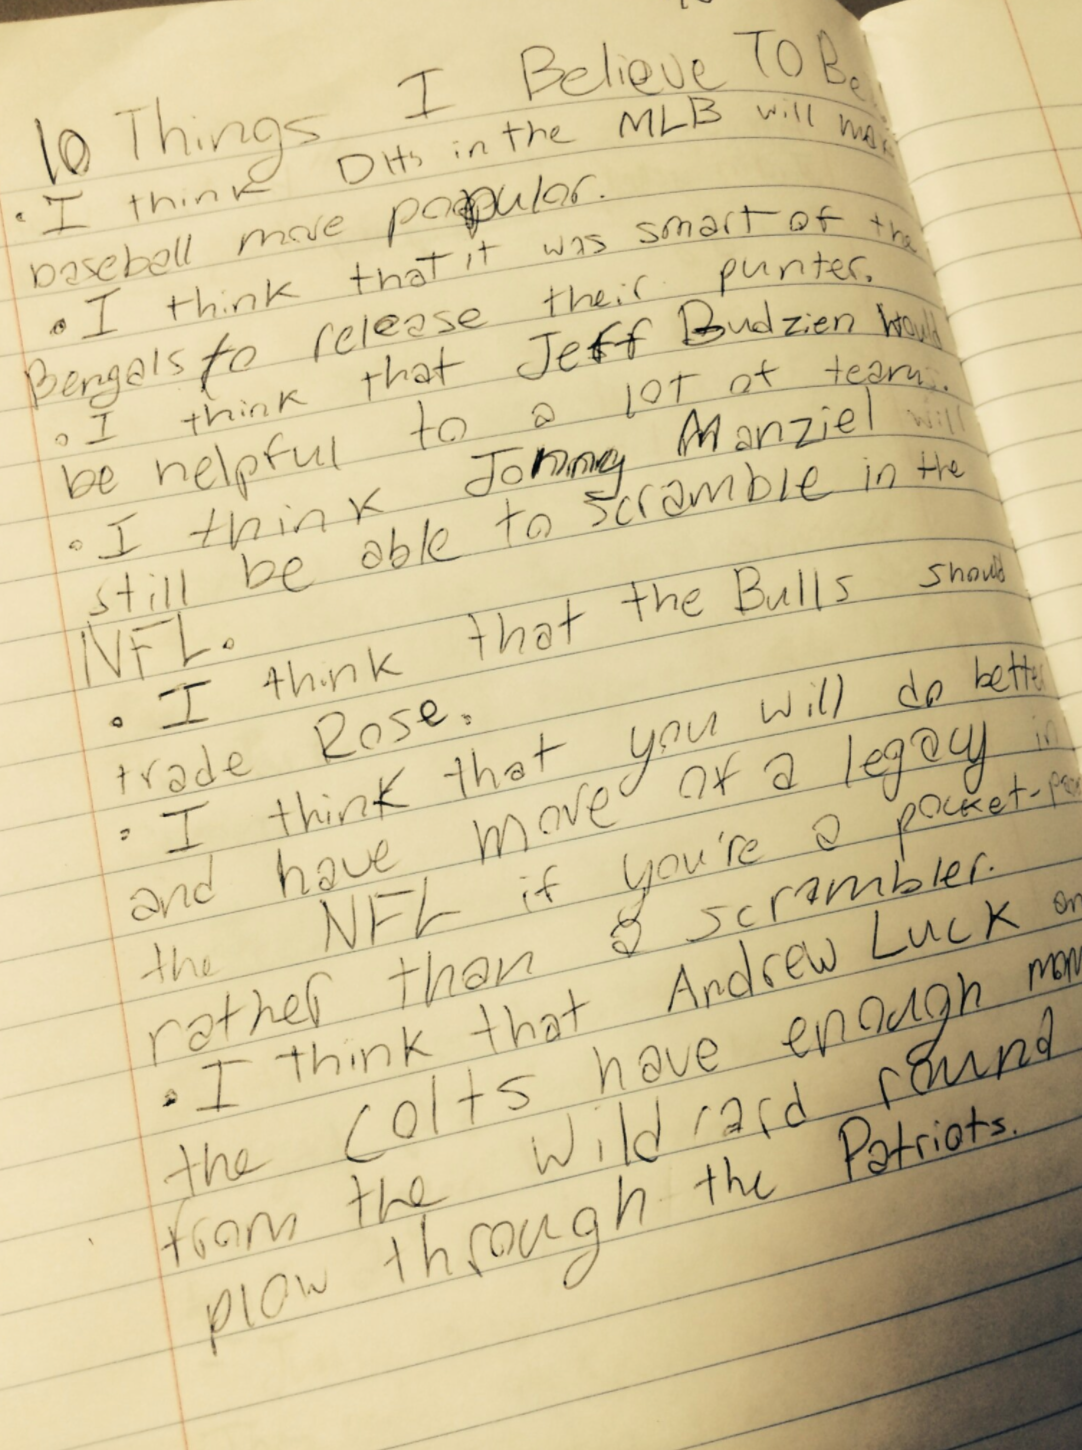 10 Things I Believe To Be
• I think DHs in the MLB will
baseball more popular.
• I think that it was smart of the
Bengals to release their punter.
• I think that Jeff Budzien would
be helpful to a lot of teams.
• I think Jonny Manziel will
still be able to scramble in the
NFL.
• I think that the Bulls should
trade Rose.
• I think that you will do better
and have more of a legacy in
the NFL if you're a pocket-
rather than a scrambler.
• I think that Andrew Luck
the Colts have enough
from the Wild card round
plow through the Patriots.